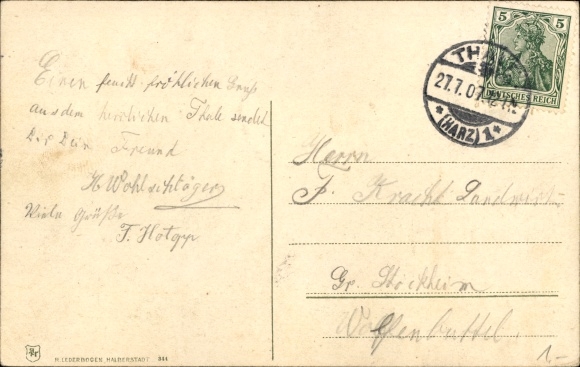 Einen feucht fröhlichen Gruß
aus dem herrlichen Thale sendet
Dir Dein Freund
H Wohlschläger
Viele Grüße
F.
5 5
DEUTSCHES REICH
27.7.07
(HARZ) 1
Herrn
F. Kracht Landwirt
Gr. Stöckheim
Wolfenbüttel.
1-
R. LEDERBOGEN, HALBERSTADT. 944